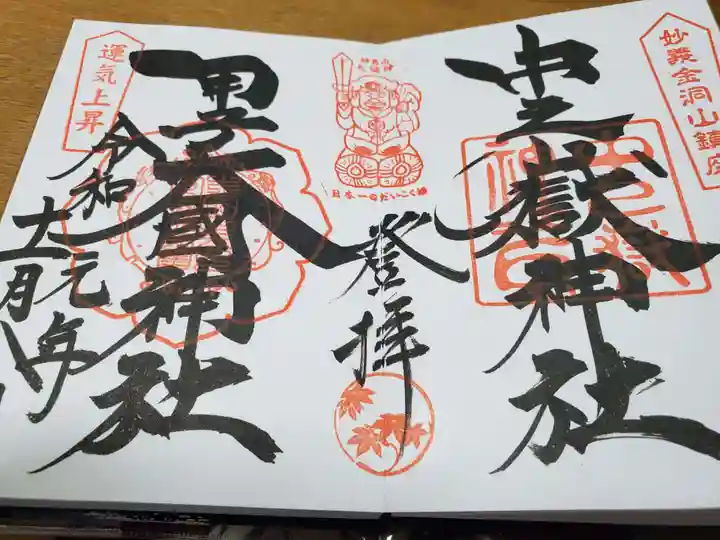 妙義金洞山鎮座
中之嶽神社
日本一のだいこく様
登拝
運気上昇
甲子大國神社
令和元年
十一月